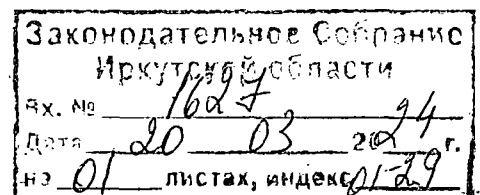 Законодательное Собрание
Иркутской области
Вх. № 1627
Дата 20 03 2024 г.
на 01 листах, индекс 01-29